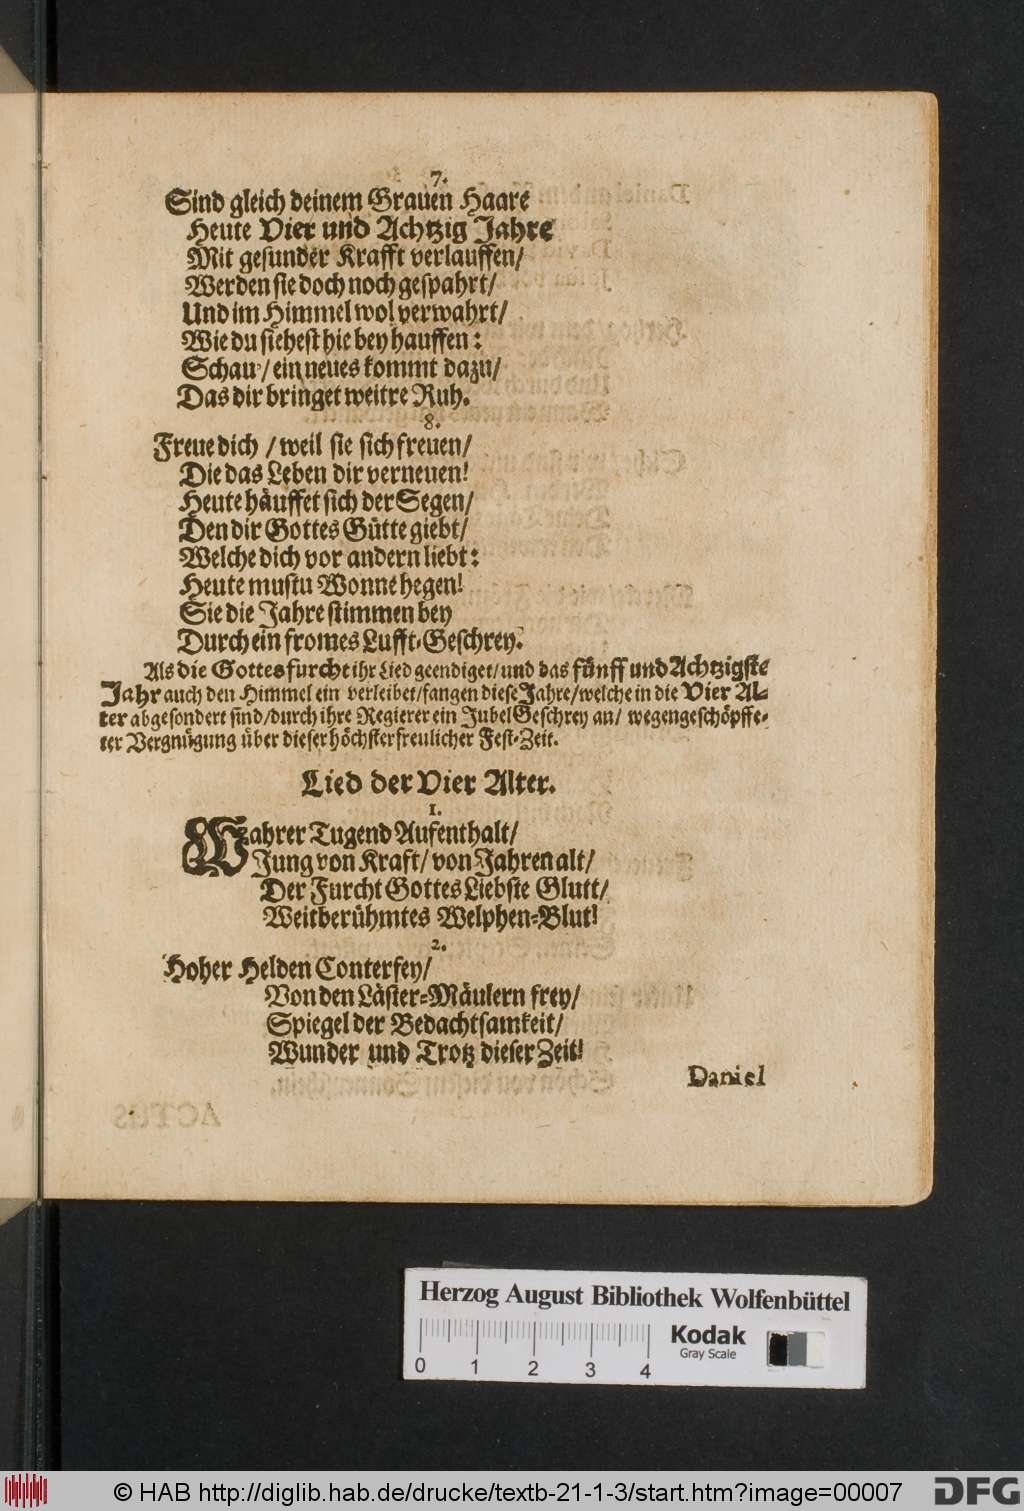 7.
Sind gleich deinem Grauen Haare
Heute Vier und Achtzig Jahre
Mit gesunder Krafft verlauffen/
Werden sie doch noch gespahrt/
Und im Himmel wol verwahrt/
Wie du siehest hie bey hauffen:
Schau/ ein neues kommt dazu/
Das dir bringet weitre Ruh.
8.
Freue dich / weil sie sich freuen/
Die das Leben dir verneuen!
Heute häuffet sich der Segen/
Den dir Gottes Gütte giebt/
Welche dich vor andern liebt:
Heute mustu Wonne hegen!
Sie die Jahre stimmen bey
Durch ein fromes Lufft-Geschrey.
Als die Gottesfurcht ihr Lied geendiget/ und das fünff und Achtzigste
Jahr auch den Himmel ein verleibet/ fangen diese Jahre/ welche in die Vier Al-
ter abgesondert sind/ durch ihre Regierer ein Jubel Geschrey an/ wegen geschöpffe-
ter Vergnügung über dieser höchsterfreulicher Fest-Zeit.
Lied der Vier Alter.
1.
Wahrer Tugend Aufenthalt/
Jung von Kraft/ von Jahren alt/
Der Furcht Gottes Liebste Glutt/
Weitberühmtes Welphen-Blut!
2.
Hoher Helden Conterfey/
Von den Läster-Mäulern frey/
Spiegel der Bedachtsamkeit/
Wunder und Trotz dieser Zeit!
Daniel
Herzog August Bibliothek Wolfenbüttel
Kodak
Gray Scale
0 1 2 3 4
© HAB http://diglib.hab.de/drucke/textb-21-1-3/start.htm?image=00007
DFG